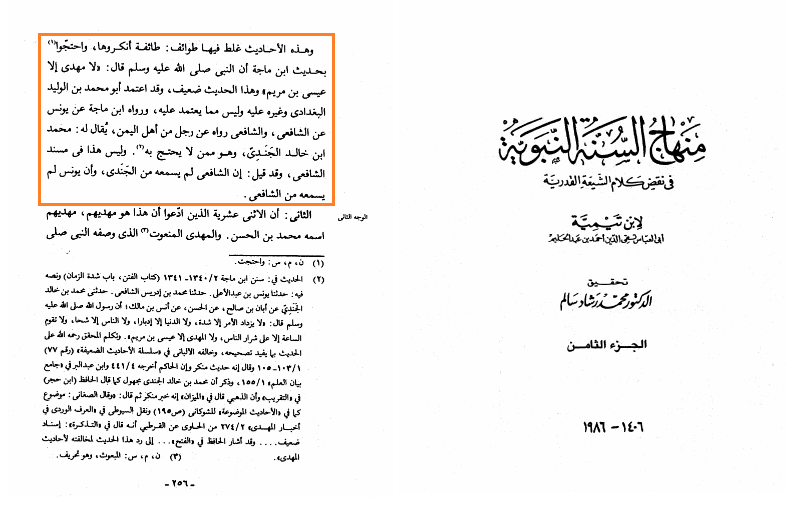 وهذه الأحاديث غلط فيها طوائف: طائفة أنكروها، واحتجّوا(١)
بحديث ابن ماجة أن النبى صلى الله عليه وسلم قال: «لا مهدى إلا
عيسى بن مريم» وهذا الحديث ضعيف، وقد اعتمد أبو محمد بن الوليد
البغدادى وغيره عليه وليس مما يعتمد عليه، ورواه ابن ماجة عن يونس
عن الشافعى، والشافعى رواه عن رجل من أهل اليمن، يُقال له: محمد
ابن خالد الجَنَدِىّ، وهو ممن لا يحتج به(٢). وليس هذا فى مسند
الشافعى، وقد قيل: إن الشافعى لم يسمعه من الجَندى، وأن يونس لم
يسمعه من الشافعى.
الثانى: أن الاثنى عشرية الذين ادّعوا أن هذا هو مهديهم، مهديهم
الوجه الثانى
اسمه محمد بن الحسن. والمهدى المنعوت(٣) الذى وصفه النبى صلى
(١) ن، م، س: واحتجت.
(٢) الحديث فى: سنن ابن ماجة ١٣٤٠/٢-١٣٤١ (كتاب الفتن، باب شدة الزمان) ونصه
فيه: حدثنا يونس بن عبدالأعلى. حدثنا محمد بن إدريس الشافعى. حدثنى محمد بن خالد
الجَنَدِىّ عن أبان بن صالح، عن الحسن، عن أنس بن مالك؛ أن رسول الله صلى الله عليه
وسلم قال: «لا يزداد الأمر إلا شدة، ولا الدنيا إلا إدبارا، ولا الناس إلا شحا، ولا تقوم
الساعة إلا على شرار الناس، ولا المهدى إلا عيسى بن مريم». وتكلم المحقق رحمه الله على
الحديث بما يفيد تصحيحه، وخالفه الألبانى فى «سلسلة الأحاديث الضعيفة» (رقم ٧٧)
١٠٣/١-١٠٥ وقال إنه حديث منكر وإن الحاكم أخرجه ٤٤١/٤ وابن عبدالبر فى «جامع
بيان العلم» ١٥٥/١، وذكر أن محمد بن خالد الجندى مجهول كما قال الحافظ (ابن حجر)
فى «التقريب» وأن الذهبى قال فى «الميزان» إنه خبر منكر ثم قال: «وقال الصغانى: موضوع
كما فى «الأحاديث الموضوعة» للشوكانى (ص١٩٥) ونقل السيوطى فى «العرف الوردى فى
أخبار المهدى» ٢٧٤/٢ من الحاوى عن القرطبى أنه قال فى «التذكرة»: إسناد
ضعيف.... وقد أشار الحافظ فى «الفتح»... إلى رد هذا الحديث لمخالفته لأحاديث
المهدى». (٣) ن، م، س: المبعوث، وهو تحريف.
- ٢٥٦ -
منهاج السنة النبوية
فى نقض كلام الشيعة القدرية
لابن تيمية
أبى العباس تقى الدين أحمد بن عبد الحليم
تحقيق
الدكتور محمد رشاد سالم
الجزء الثامن
١٤٠٦ - ١٩٨٦